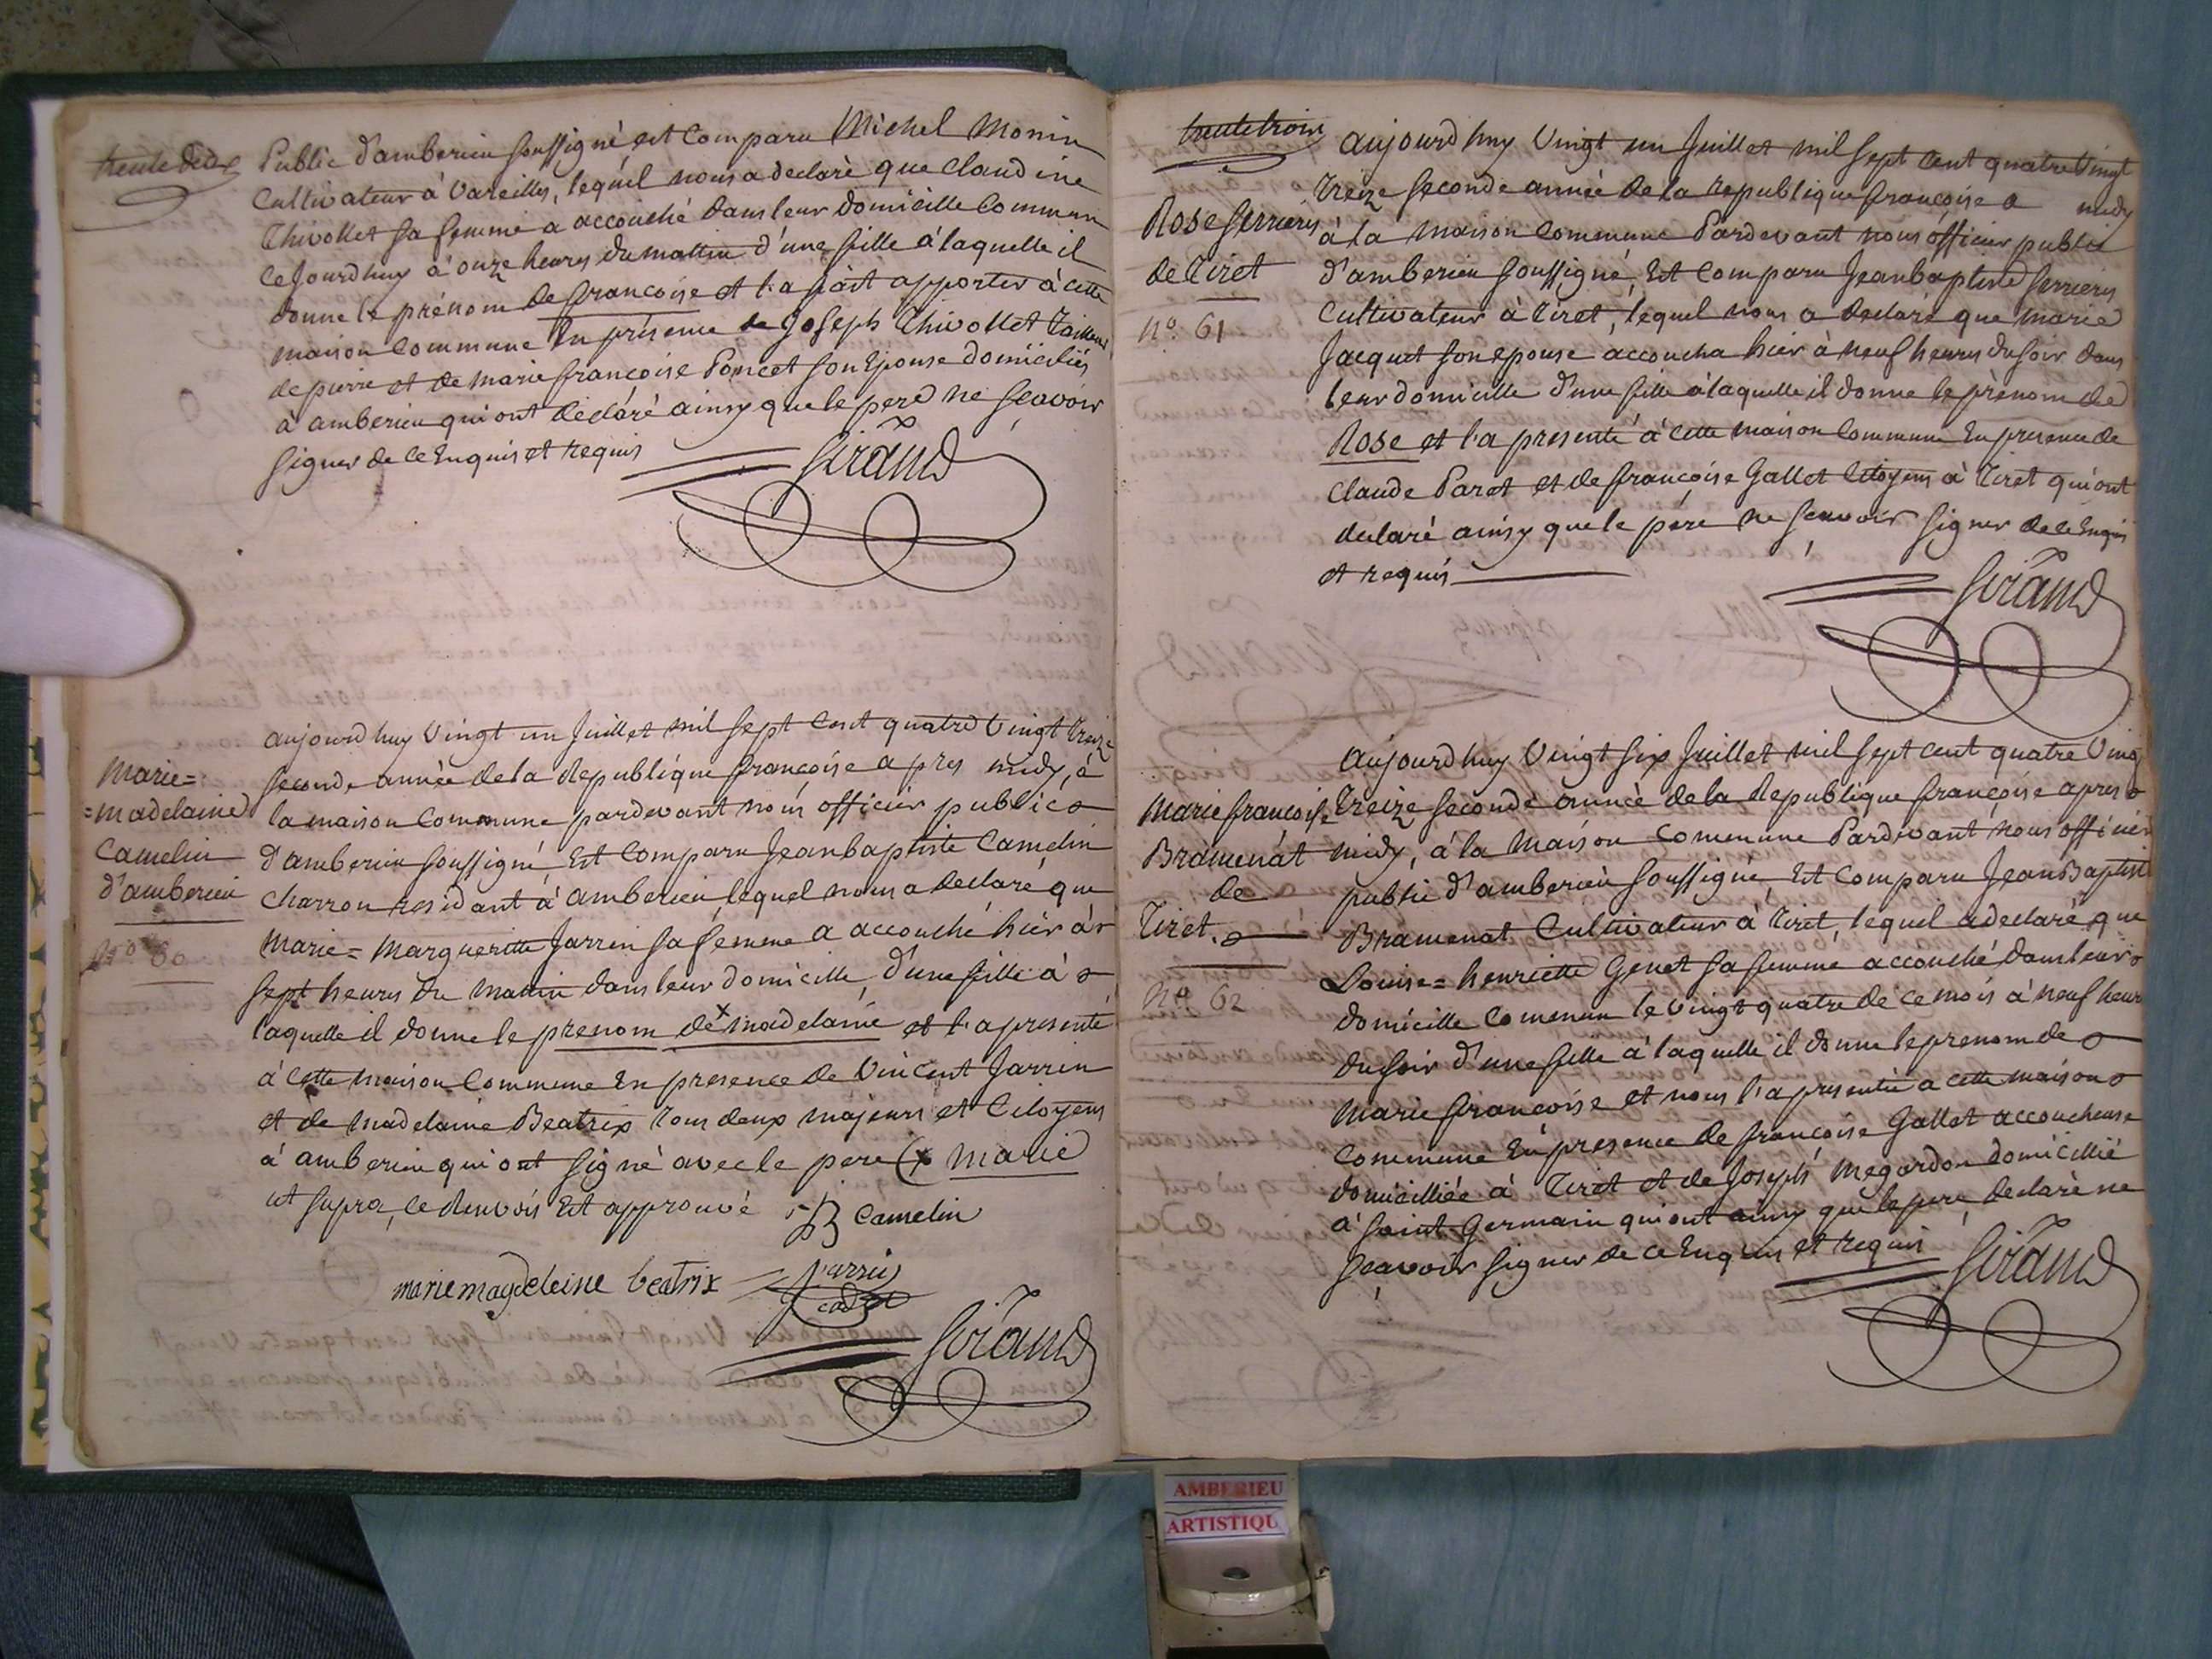 trente deux
Public d'amberieu soussigné est Comparu Michel Monin
Cultivateur à Vareilles, lequil nous a declaré que Claudine
Chivollet sa femme a accouché dans leur domicille Commun
Cejourdhuy à onze heures du mattin d'une fille à laquelle il
donne le prénom de francoise et l'a fait apporter à cette
maison Commune En présence de Joseph Chivollet
de pierre et de marie francoise Poncet son Epouse domiciliés
à amberieu qui ont déclaré ainsy que le pere ne sçavoir
signer de ce Enquis et requis
Sirand
Marie=
=madelaine
Camelin
d'amberieu
no 60
aujourdhuy Vingt un Juillet mil sept Cent quatre Vingt treize
seconde année dela Republique francoise apres midy, à
la maison Commune pardevant nous officier public
d'amberieu soussigné, Est Comparu Jeanbaptiste Camelin
Charron residant à amberieu, lequel nous a declaré que
Marie= Margueritte Jarrin sa femme a accouché hier à
sept heures du matin dans leur domicille, d'une fille à
laquelle il donne le prenom de x madelaine et l'a presenté
à cette maison Commune En presence de Vincent Jarrin
et de madelaine Beatrix tous deux majeurs et Citoyens
à amberieu qui ont signé avec le pere (x marie
ut supra, ce Renvois Est approuvé
JB Camelin
marie magdeleine beatrix
Jarrin
cadet
Sirand
trente trois
Rose ferrieres
de Tiret
no. 61
aujourdhuy Vingt un Juillet mil sept Cent quatre Vingt
treize seconde année de la republique francoise a midy
à la maison Commune Pardevant nous officier public
d'amberieu soussigné, Est Comparu Jeanbaptiste ferrieres
Cultivateur à Tiret, lequel nous a declaré que marie
Jacquet son epouse accoucha hier à neuf heures du soir dans
leur domicille d'une fille à laquelle il donne le prènom de
Rose et l'a presenté à cette maison Commune En presence de
Claude Paret et de françoise Gallet Citoyens à Tiret qui ont
declaré ainsy que le père ne sçavoir signer de ce Enquis
et requis
Sirand
Marie francoise
Bramenat
de
Tiret.
no. 62
aujourdhuy Vingt six Juillet mil sept cent quatre Ving
treize seconde année de la Republique françoise apres
midy, à la Maison Commune Pardevant nous officier
public d'amberieu soussigné, Est Comparu Jean Baptist
Bramenat Cultivateur à Tiret, lequel a declaré que
Louise= henriette Genet sa femme accouché dans leur
domicille Commun le Vingt quatre de ce mois à neuf heur
du soir d'une fille à laquelle il donne le prenom de
Marie francoise et nous l'a presentée a cette maison
Commune En presence de françoise Gallet accoucheuse
domicilliée à Tiret et de Joseph Megardon domicillié
à Saint Germain qui ont ainsy que le pere, declaré ne
sçavoir signer de ce Enquis et requis
Sirand
AMBERIEU
ARTISTIQU